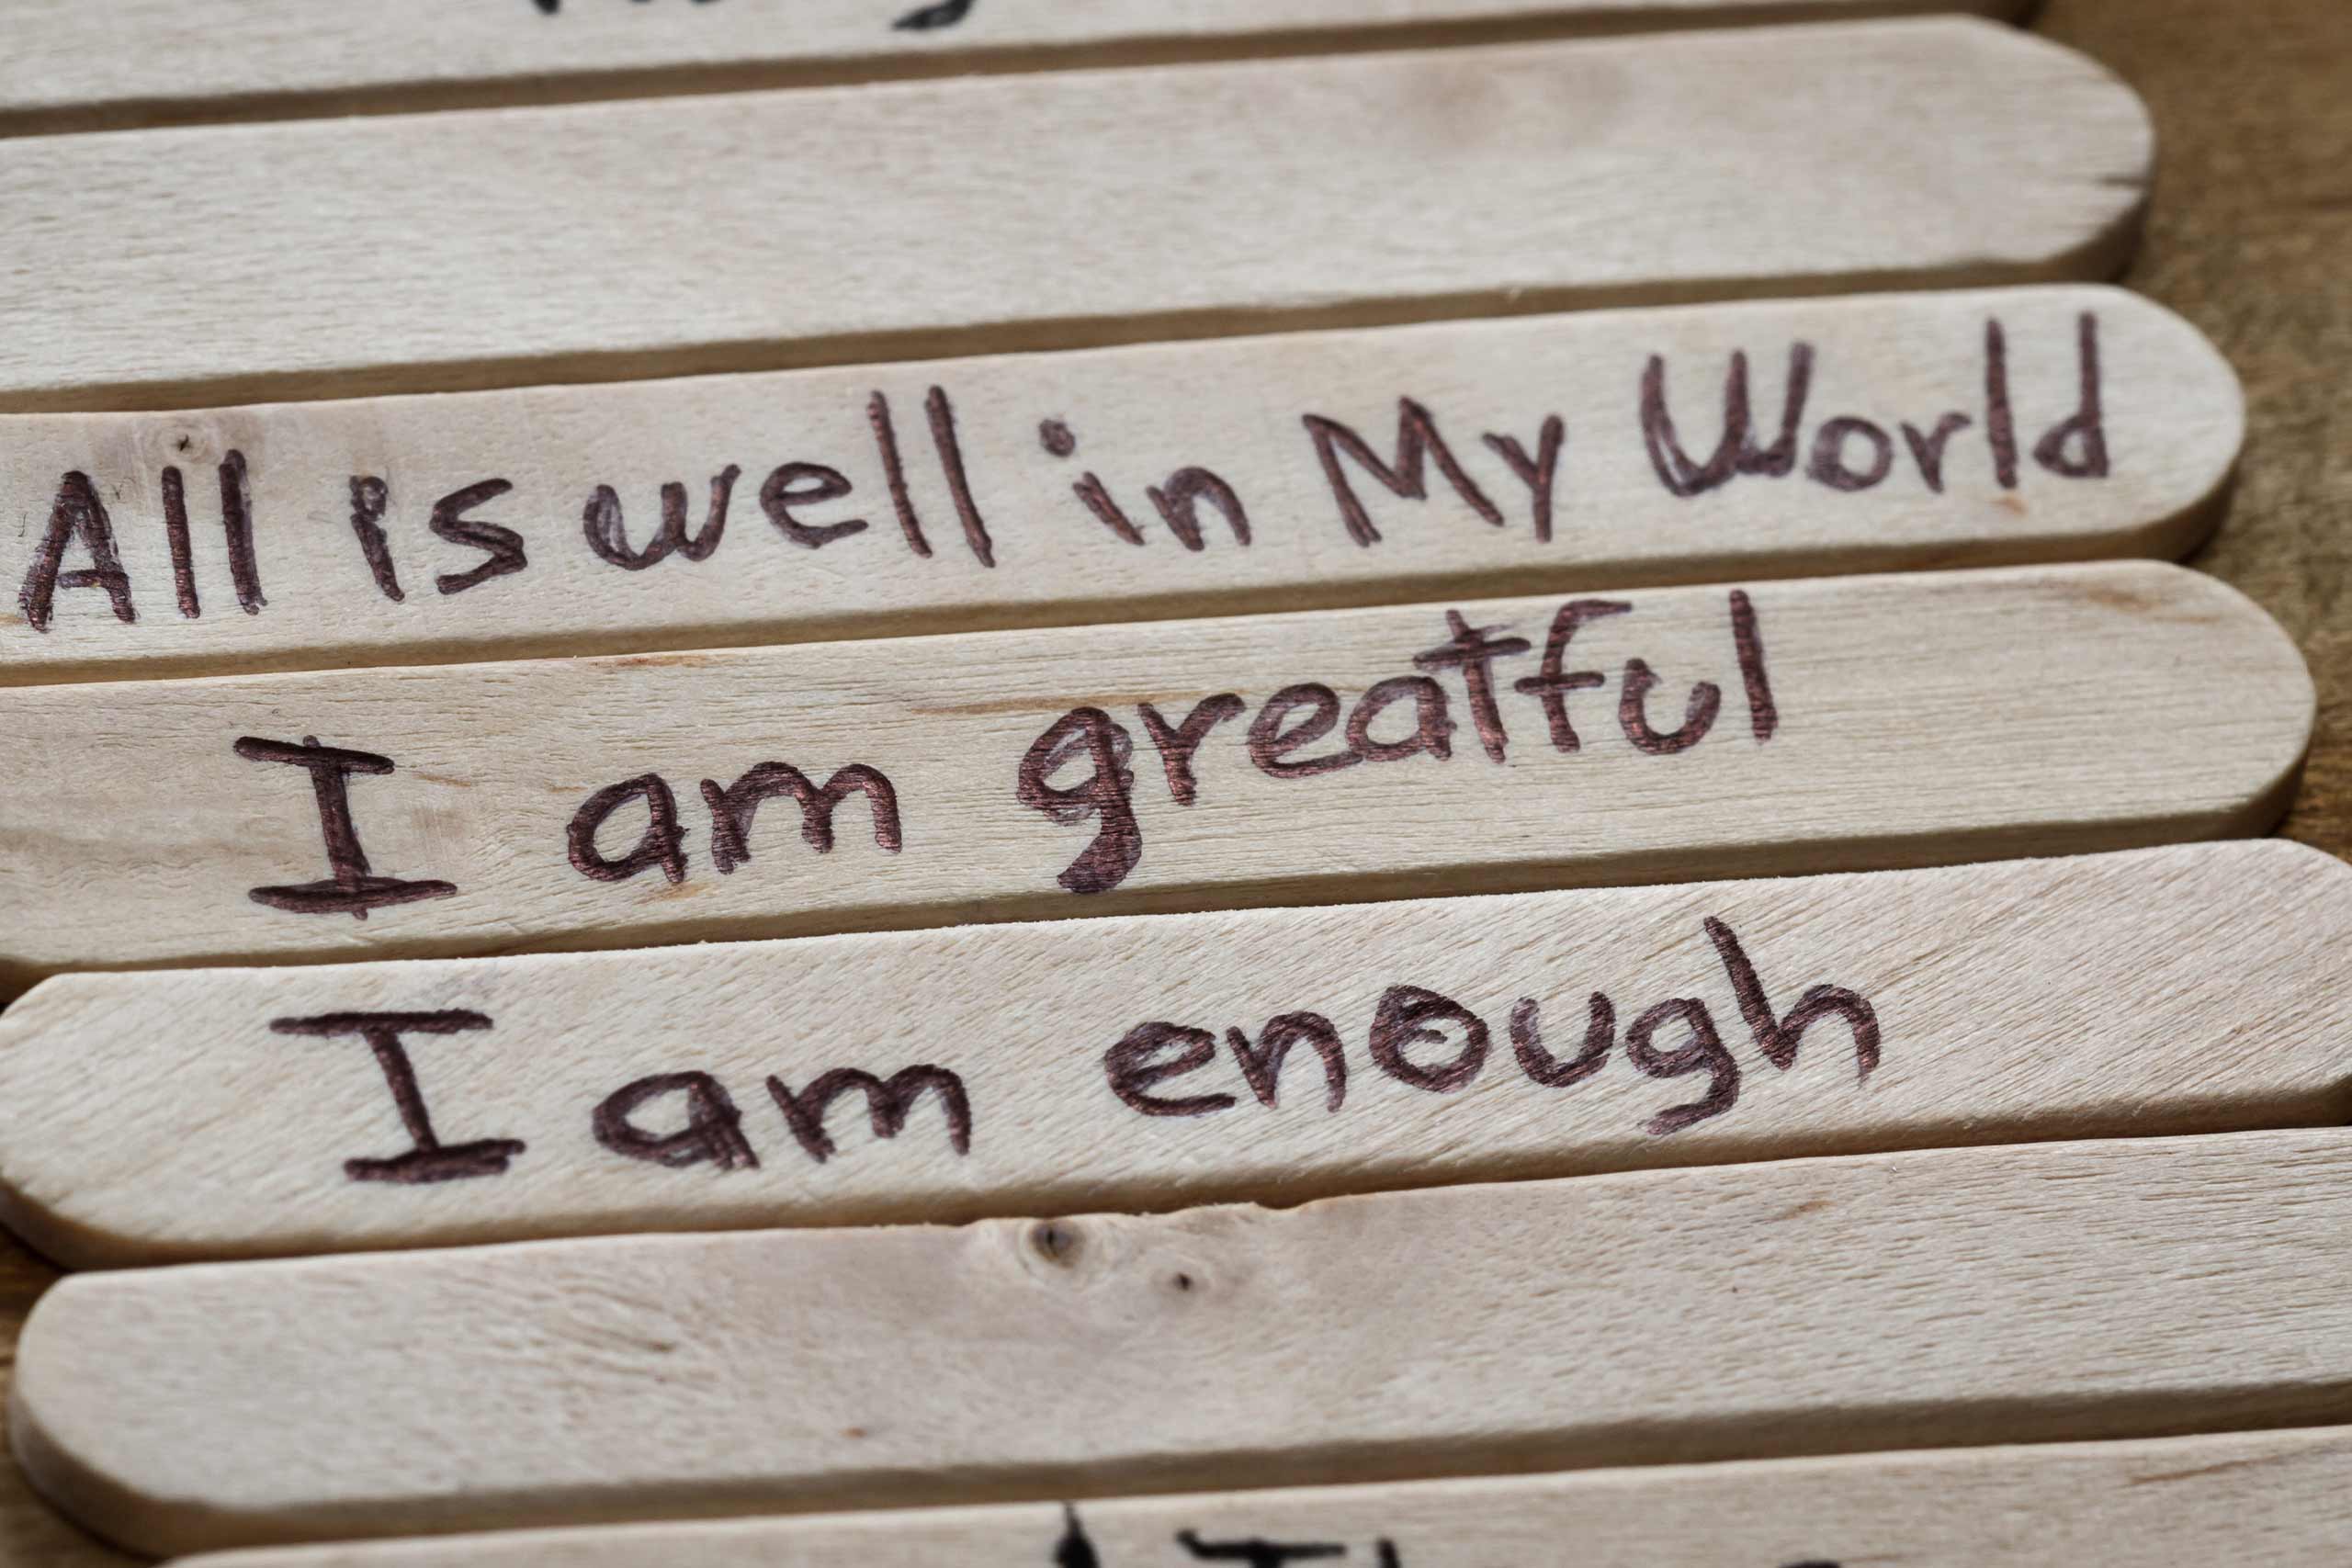 All is well in My World
I am greatful
I am enough